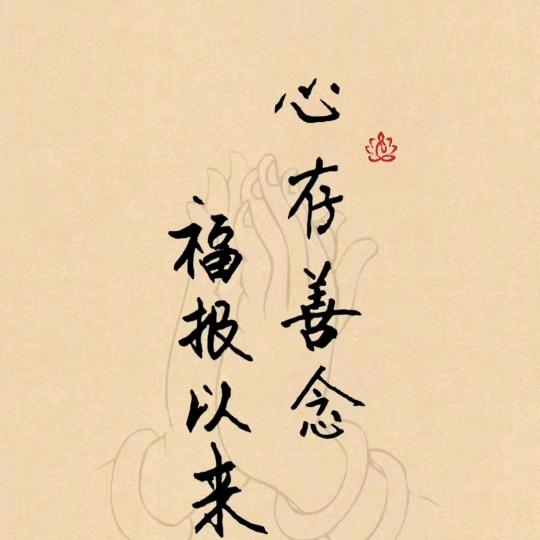 心存善念
福报以来